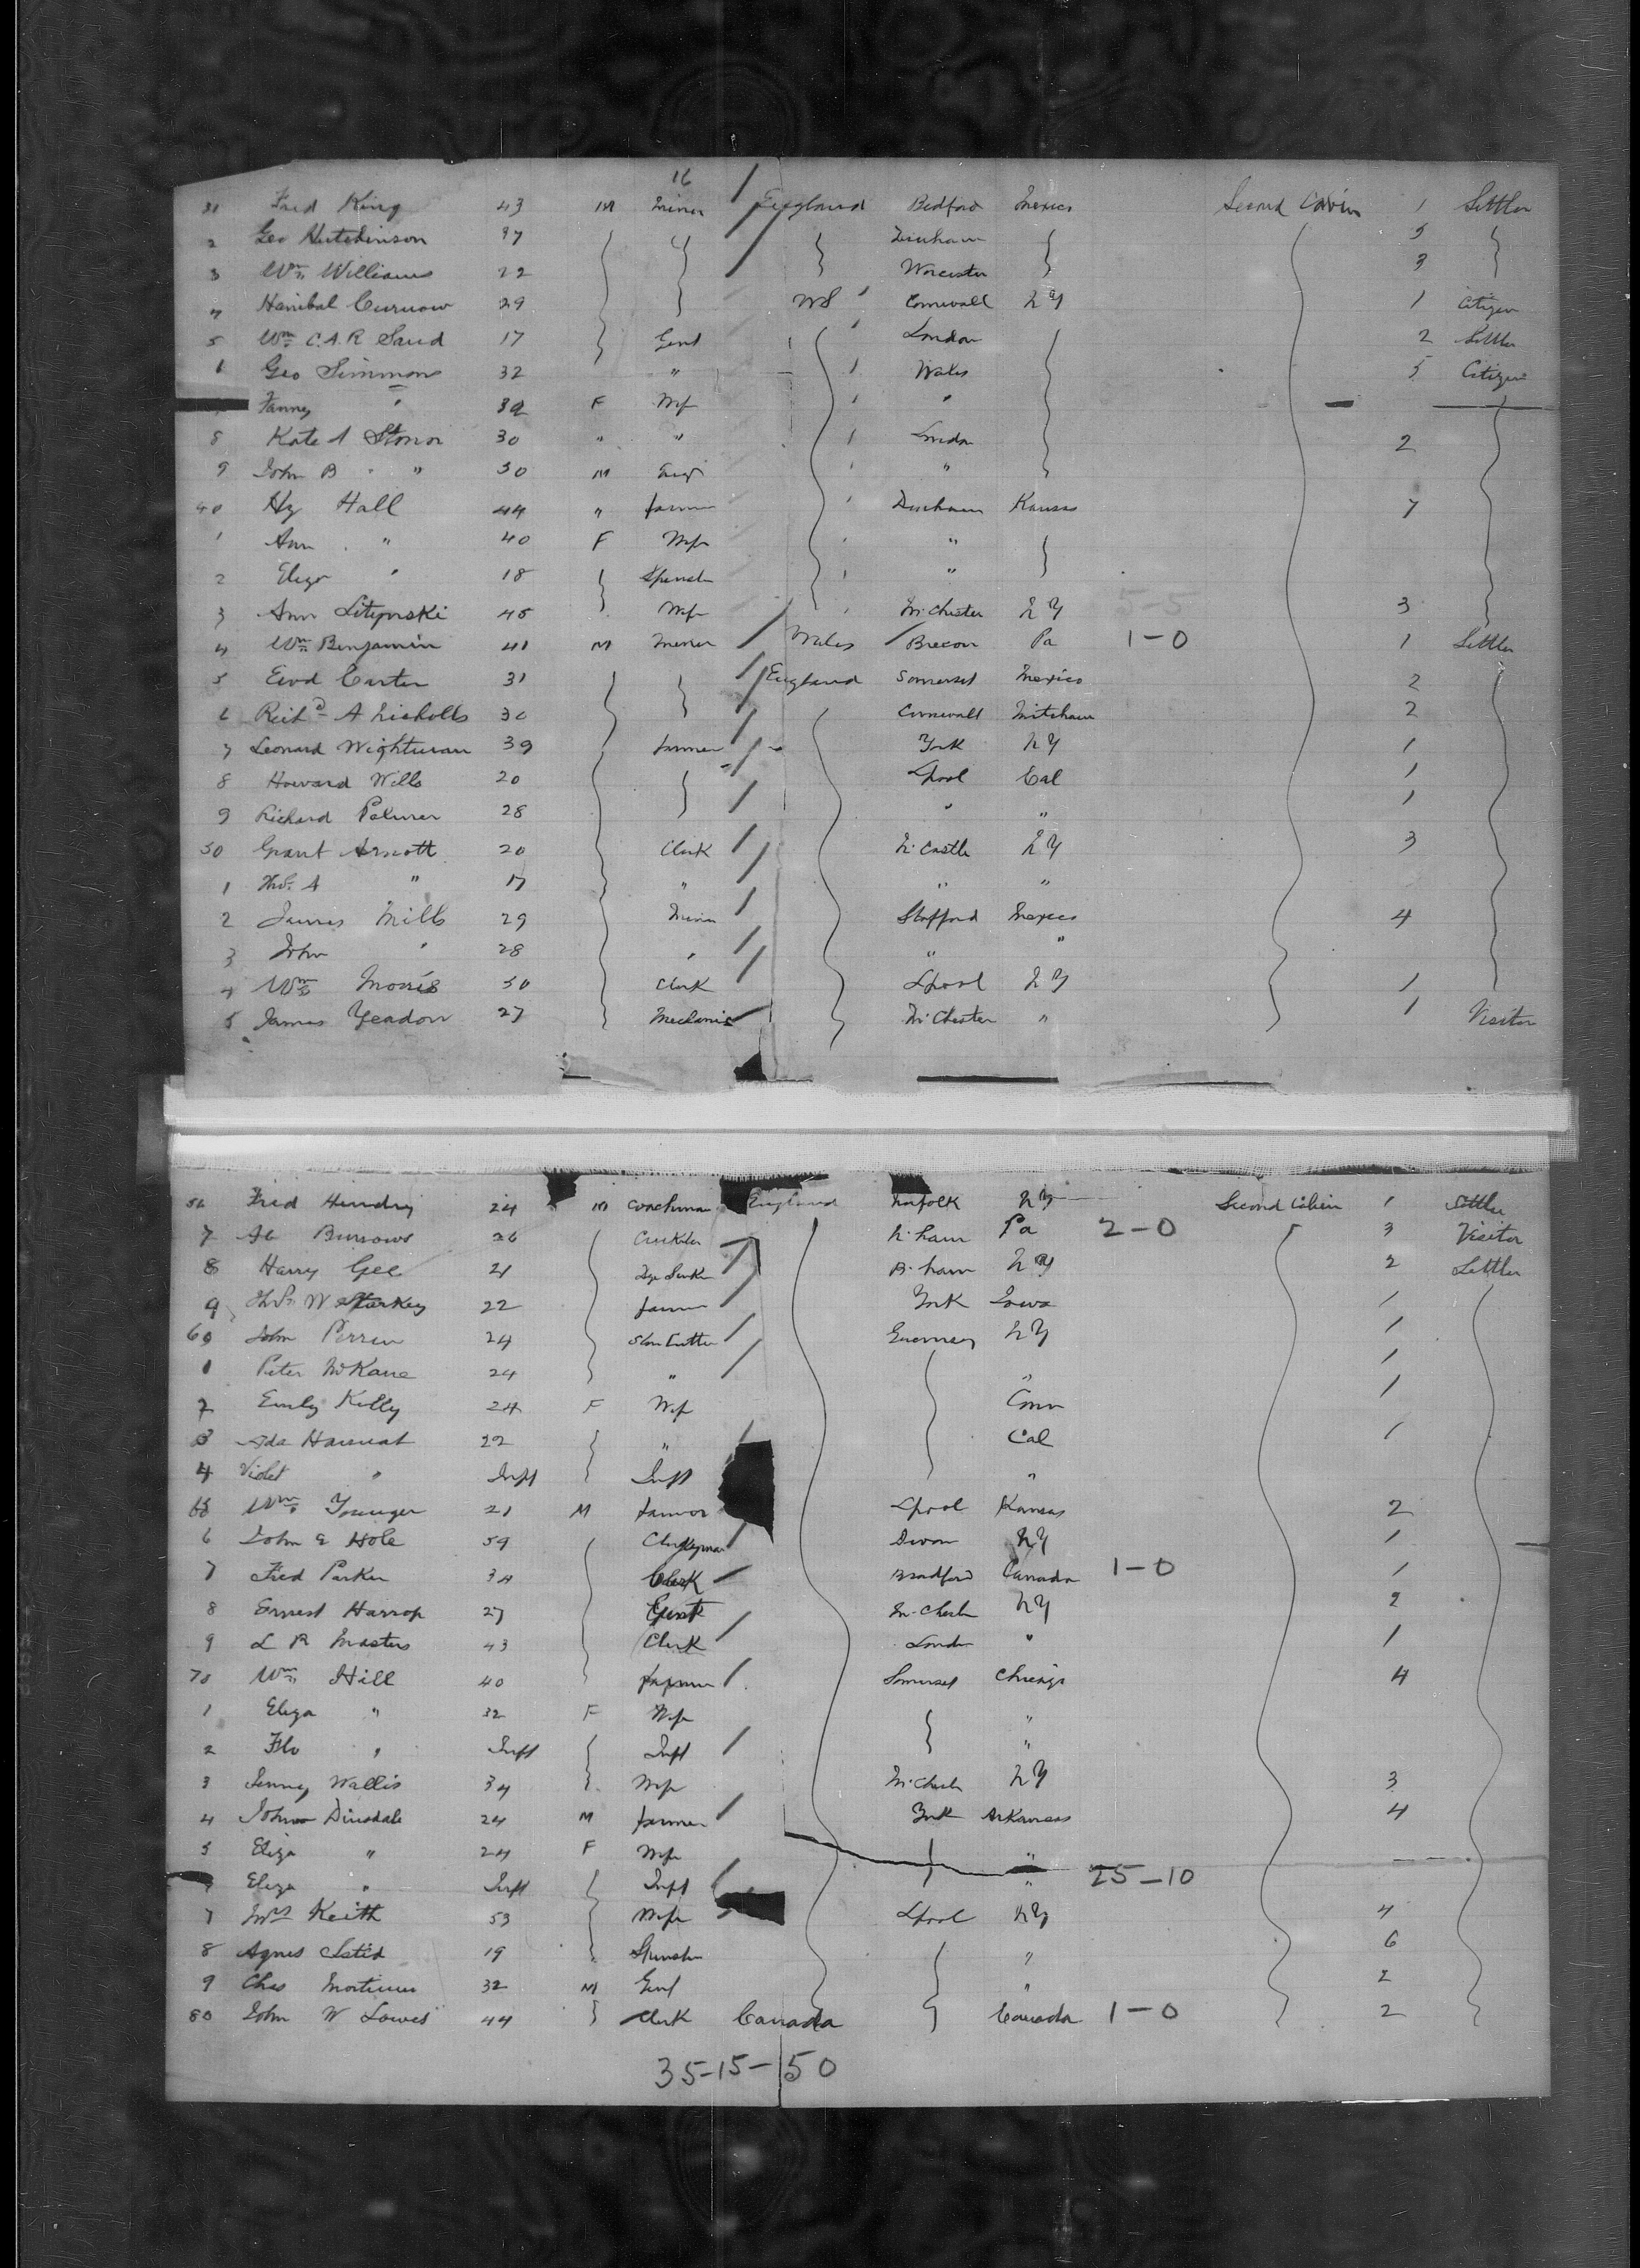 16
31 Fred King 43 M Miner England Bedford Mexico Second Cabin 1 Settler
2 Geo Hutchinson 37 Durham 5
3 Wm Williams 22 Worcester 3
4 Hanibal Curnow 29 US Cornwall N Y 1 Citizen
5 Wm C. A. R Sand 17 Gent London 2 Settler
6 Geo Simmons 32 " Wales 5 Citizen
Fanny " 32 F Wife "
8 Kate A Stonor 30 " " London 2
9 John B " " 30 M "
40 Hy Hall 44 " farmer Durham Kansas 7
1 Ann " 40 F Wife "
2 Eliza " 18 Spinster "
3 Ann 45 Wife M'Chester N Y 3
4 Wm Benjamin 41 M Miner Wales Brecon Pa 1-0 1 Settler
5 Carter 31 England Somerset Mexico 2
6 Richd A Nicholls 30 Cornwall 2
7 Leonard Wightman 39 farmer York N Y 1
8 Howard Wills 20 Lpool Cal 1
9 Richard Palmer 28 " " 1
50 Grant Arnott 20 Clerk N. Castle N Y 3
1 Thos. A " 17 " " "
2 James Mills 29 Miner Stafford Mexico 4
3 John " 28 " " "
4 Wm Morris 30 Clerk Lpool N Y 1
5 James Yeadon 27 Mechanic M'Chester " 1 Visitor
56 Fred Hendry 24 M Coachman England Norfolk N Y Second Cabin 1 Settler
7 Ab Burrows 26 N. ham Pa 2-0 3 Visitor
8 Harry Gee 21 B. ham N Y 2 Settler
9 Thos W Starkey 22 farmer York Iowa 1
60 John Perren 24 Stone Cutter Guernsey N Y 1
1 Peter McKane 24 " " 1
2 Emily Kelly 24 F Wife Conn 1
3 Ada 22 " Cal 1
4 Violet " Inft Inft "
65 Wm Younger 21 M farmer Lpool Kansas 2
6 John E Hole 59 Clergyman Devon N Y 1
7 Fred Parker 34 Clerk Bradford Canada 1-0 1
8 Ernest Harrop 27 Gent M. Chester N Y 2
9 L R Masters 43 Clerk London " 1
70 Wm Hill 40 farmer Somerset Chicago 4
1 Eliza " 32 F Wife "
2 Flo " Inft Inft "
3 Jenny Wallis 34 Wife M. Chester N Y 3
4 John Dinsdale 24 M farmer York Arkansas 4
5 Eliza " 24 F Wife "
Eliza " Inft Inft " 25-10
7 Mrs Keith 53 Wife Lpool N Y 4
8 Agnes 19 Spinster " 6
9 Chas Mortimer 32 M Gent " 2
80 John W Lowes 44 Clerk Canada Canada 1-0 2
35-15-50